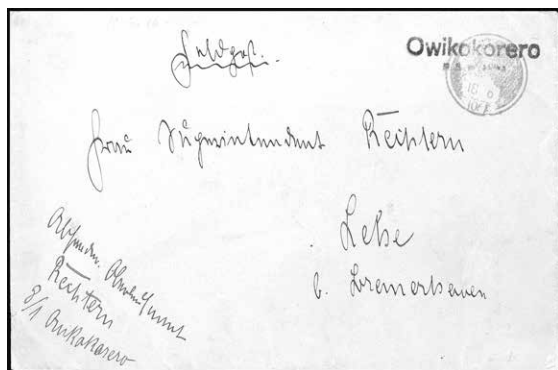 Feldpost.
Owikokorero
Frau Superintendent Rechtern
Lehe
b. Bremerhaven
Absender.
Rechtern
Owikokorero